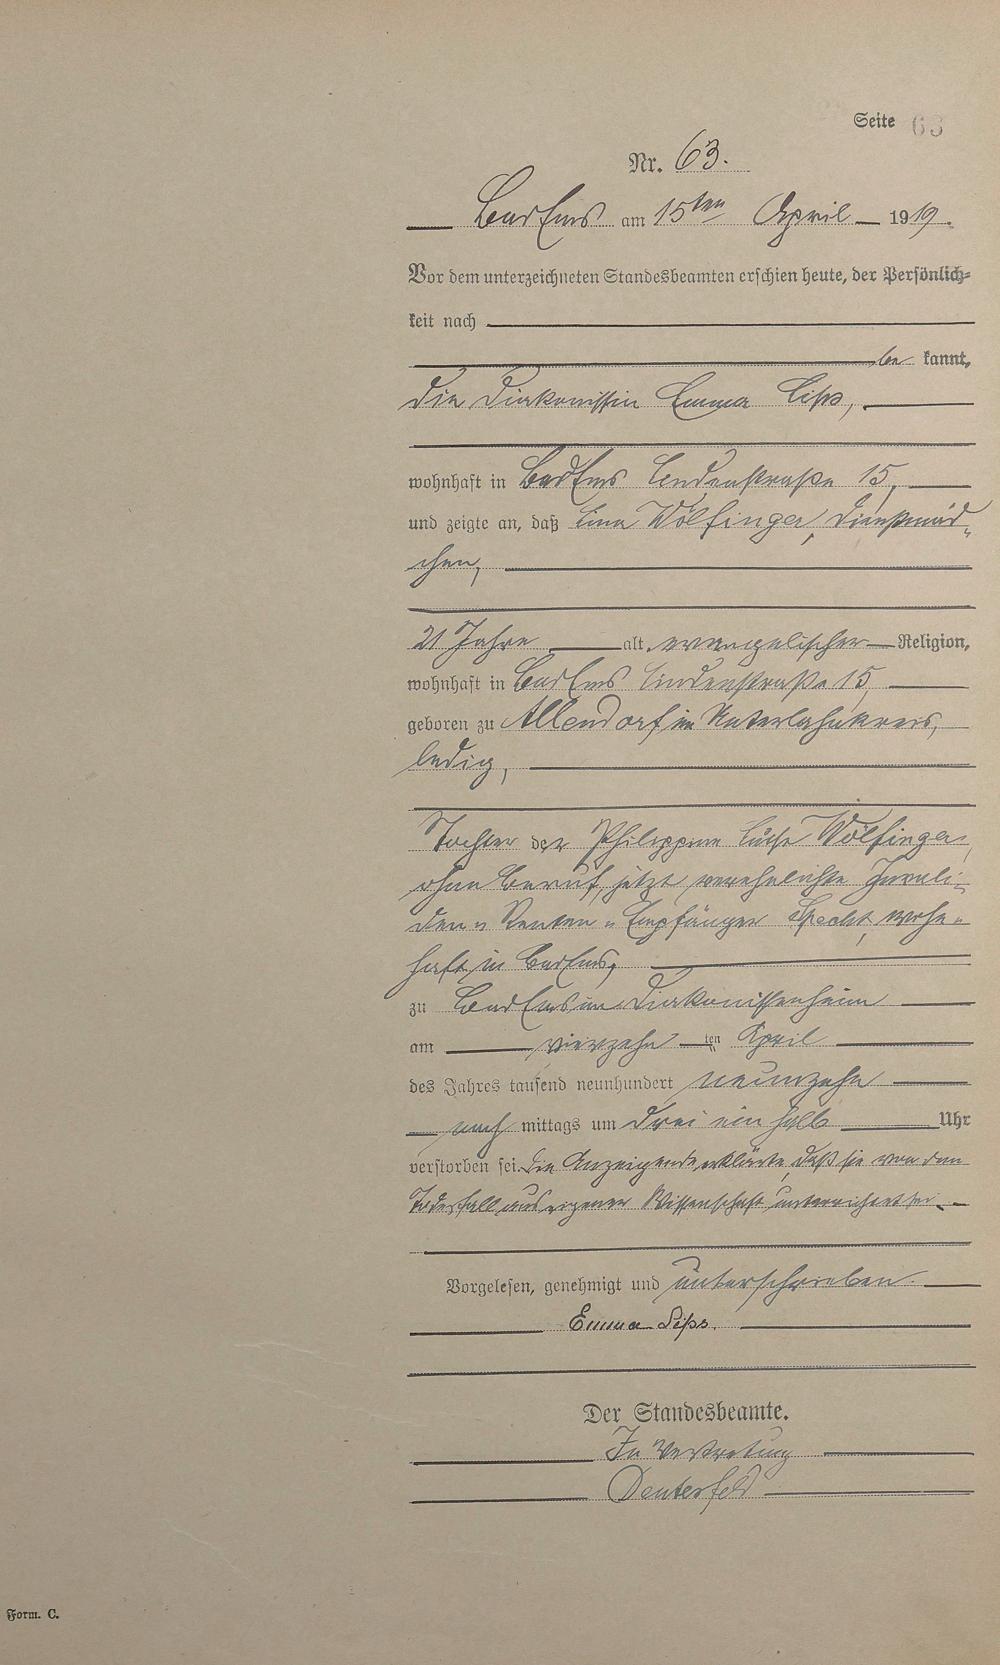 Seite 63
Nr. 63.
Bad Ems am 15ten April 1919.
Vor dem unterzeichneten Standesbeamten erschien heute, der Persönlich-
keit nach
be kannt,
die Diakonissin Emma Lips,
wohnhaft in Bad Ems Lindenstraße 15,
und zeigte an, daß Lina Wölfinger, Dienstmäd-
chen,
21 Jahre alt, evangelischer Religion,
wohnhaft in Bad Ems Lindenstraße 15
geboren zu Allendorf im Unterlahnkreis,
ledig,
Tochter der Philippine Luise Wölfinger,
ohne Beruf, jetzt verehelichte Invali-
den- Renten- Empfänger Specht, wohn-
haft in Bad Ems,
zu Bad Ems im Diakonissenheim
am vierzehn ten April
des Jahres tausend neunhundert neunzehn
nach mittags um drei ein halb Uhr
verstorben sei. Die Anzeigende erklärte, daß sie von dem
Todesfall aus eigener Wissenschaft unterrichtet sei.
Vorgelesen, genehmigt und unterschrieben.
Emma Lips.
Der Standesbeamte.
In Vertretung
Form. C.